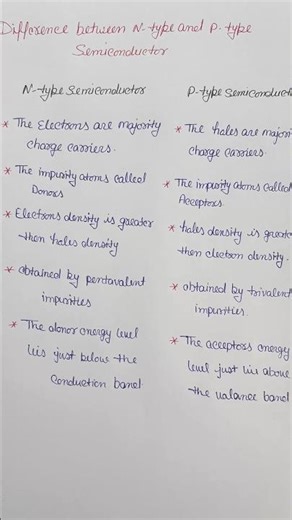 Difference between N-type and P-type
Semiconductor
N-type Semiconductor
* The Electrons are majority
charge carriers.
* The impurity atoms called
Donors
* Electrons density is greater
then holes density
* obtained by pentavalent
impurities
* The donor energy level
lis just below the
Conduction band
P-type Semiconduct
* The holes are majori
charge carriers.
* The impurity atoms called
Acceptors.
* holes density is greate
then electron density.
* obtained by trivalent
impurities.
* The acceptors energy
level just lis above
the valance band